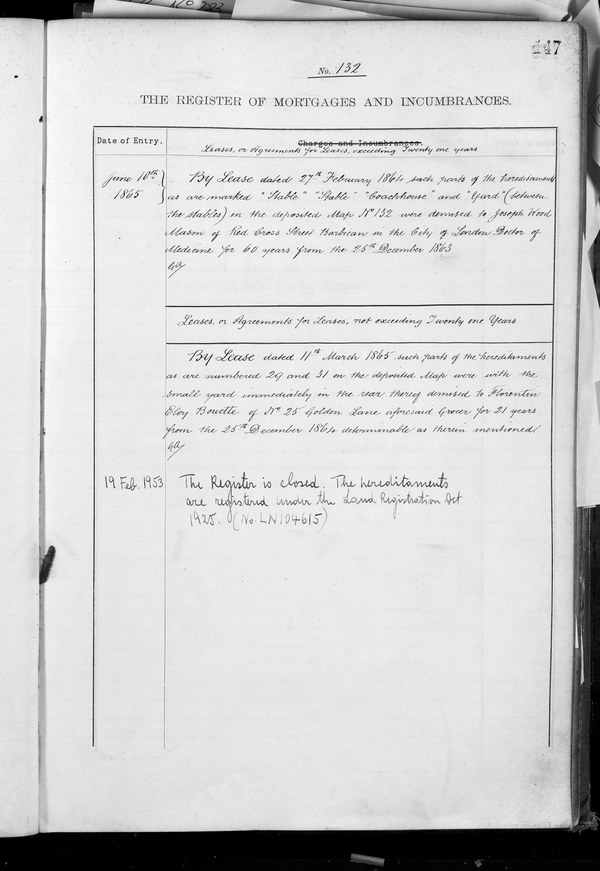 No 222
147
No. 132
THE REGISTER OF MORTGAGES AND INCUMBRANCES.
Date of Entry.
Charges and Incumbrances.
Leases, or Agreements for Leases, exceeding Twenty one years
June 10th
1865
By Lease dated 27th February 1864 such parts of the hereditaments
as are marked "Stable" "Stable" "Coachhouse" and "Yard" (between
the stables) on the deposited Map No 132 were demised to Joseph Wood
Mason of Red Cross Street Barbican in the City of London Doctor of
Medicine for 60 years from the 25th December 1863
Leases, or Agreements for Leases, not exceeding Twenty one Years
By Lease dated 11th March 1865 such parts of the hereditaments
as are numbered 29 and 31 on the deposited Map were with the
small yard immediately in the rear thereof demised to Florentin
Eloy Boudte of No 25 Golden Lane aforesaid Grocer for 21 years
from the 25th December 1864 determinable as therein mentioned
19 Feb. 1953
The Register is closed. The hereditaments
are registered under the Land Registration Act
1925. (No. LN104615)